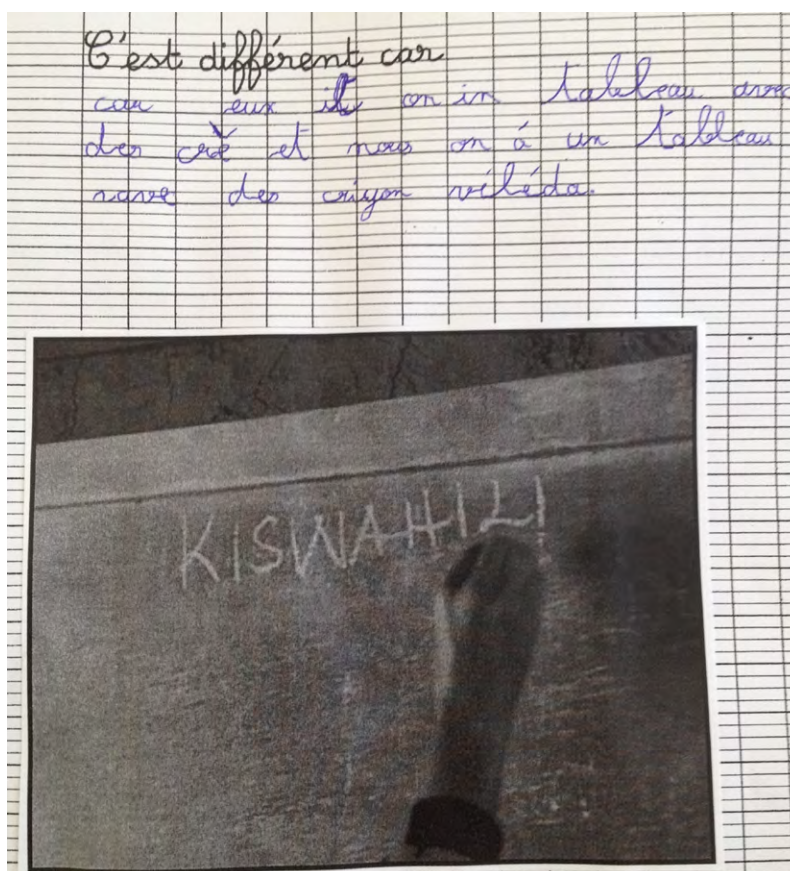 C'est différent car
car eux il on in tableau avec
des crè et nous on á un tableau
des criyon véléda.
KISWAHILI